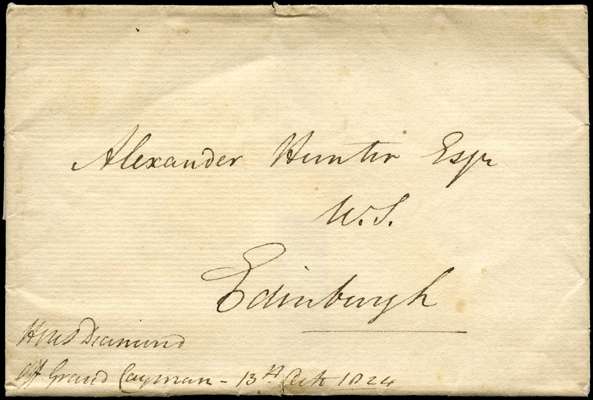 Alexander Hunter Esqr
W.S.
Edinburgh
Diamond
off Grand Cayman - 13th 1824